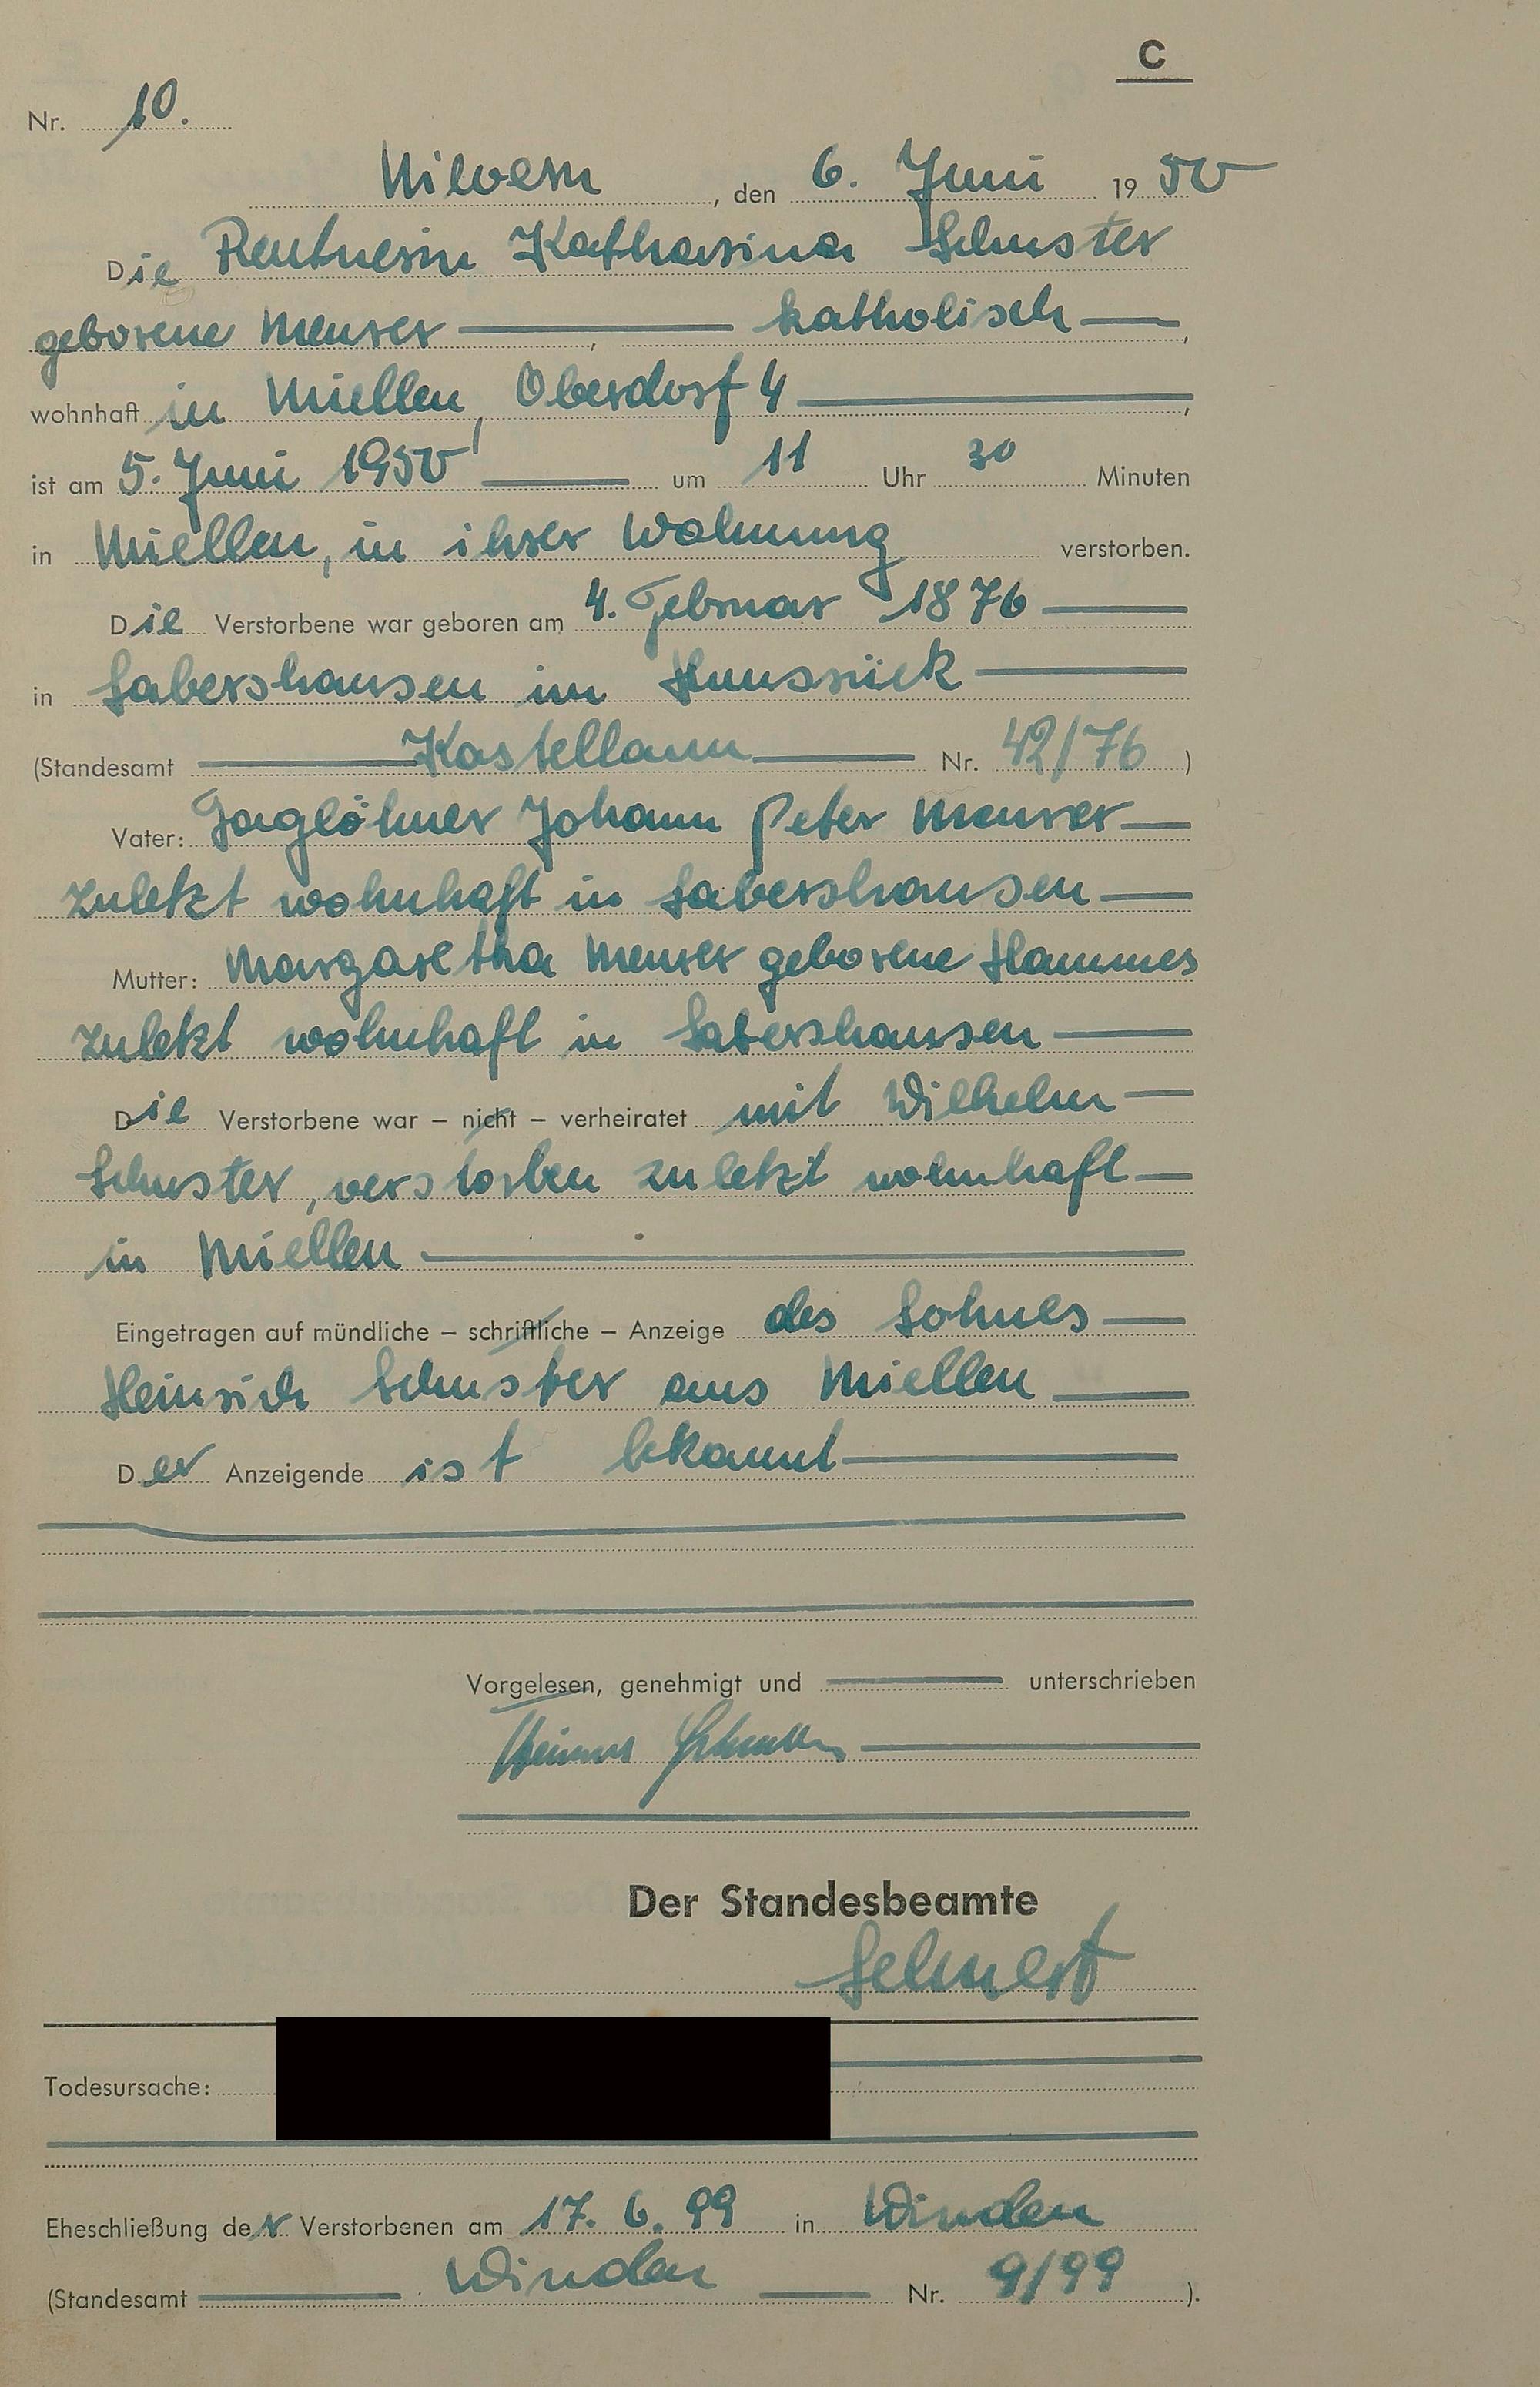 C
Nr. 10.
Nievern, den 6. Juni 1950
Die Rentnerin Katharina Schuster
geborene Menser, katholisch,
wohnhaft in Miellen, Oberdorf 4,
ist am 5. Juni 1950 um 11 Uhr 30 Minuten
in Miellen, in ihrer Wohnung verstorben.
Die Verstorbene war geboren am 4. Februar 1876
in Sabershausen im Hunsrück
(Standesamt Kastellaun Nr. 42/76)
Vater: Taglöhner Johann Peter Menser
zuletzt wohnhaft in Sabershausen
Mutter: Margaretha Menser geborene Hammes
zuletzt wohnhaft in Sabershausen
Die Verstorbene war – nicht – verheiratet mit Wilhelm
Schuster, verstorben zuletzt wohnhaft
in Miellen
Eingetragen auf mündliche – schriftliche – Anzeige des Sohnes
Heinrich Schuster aus Miellen
Der Anzeigende ist bekannt
Vorgelesen, genehmigt und unterschrieben
Der Standesbeamte
Todesursache:
Eheschließung der Verstorbenen am 17. 6. 99 in Winden
(Standesamt Winden Nr. 9/99).